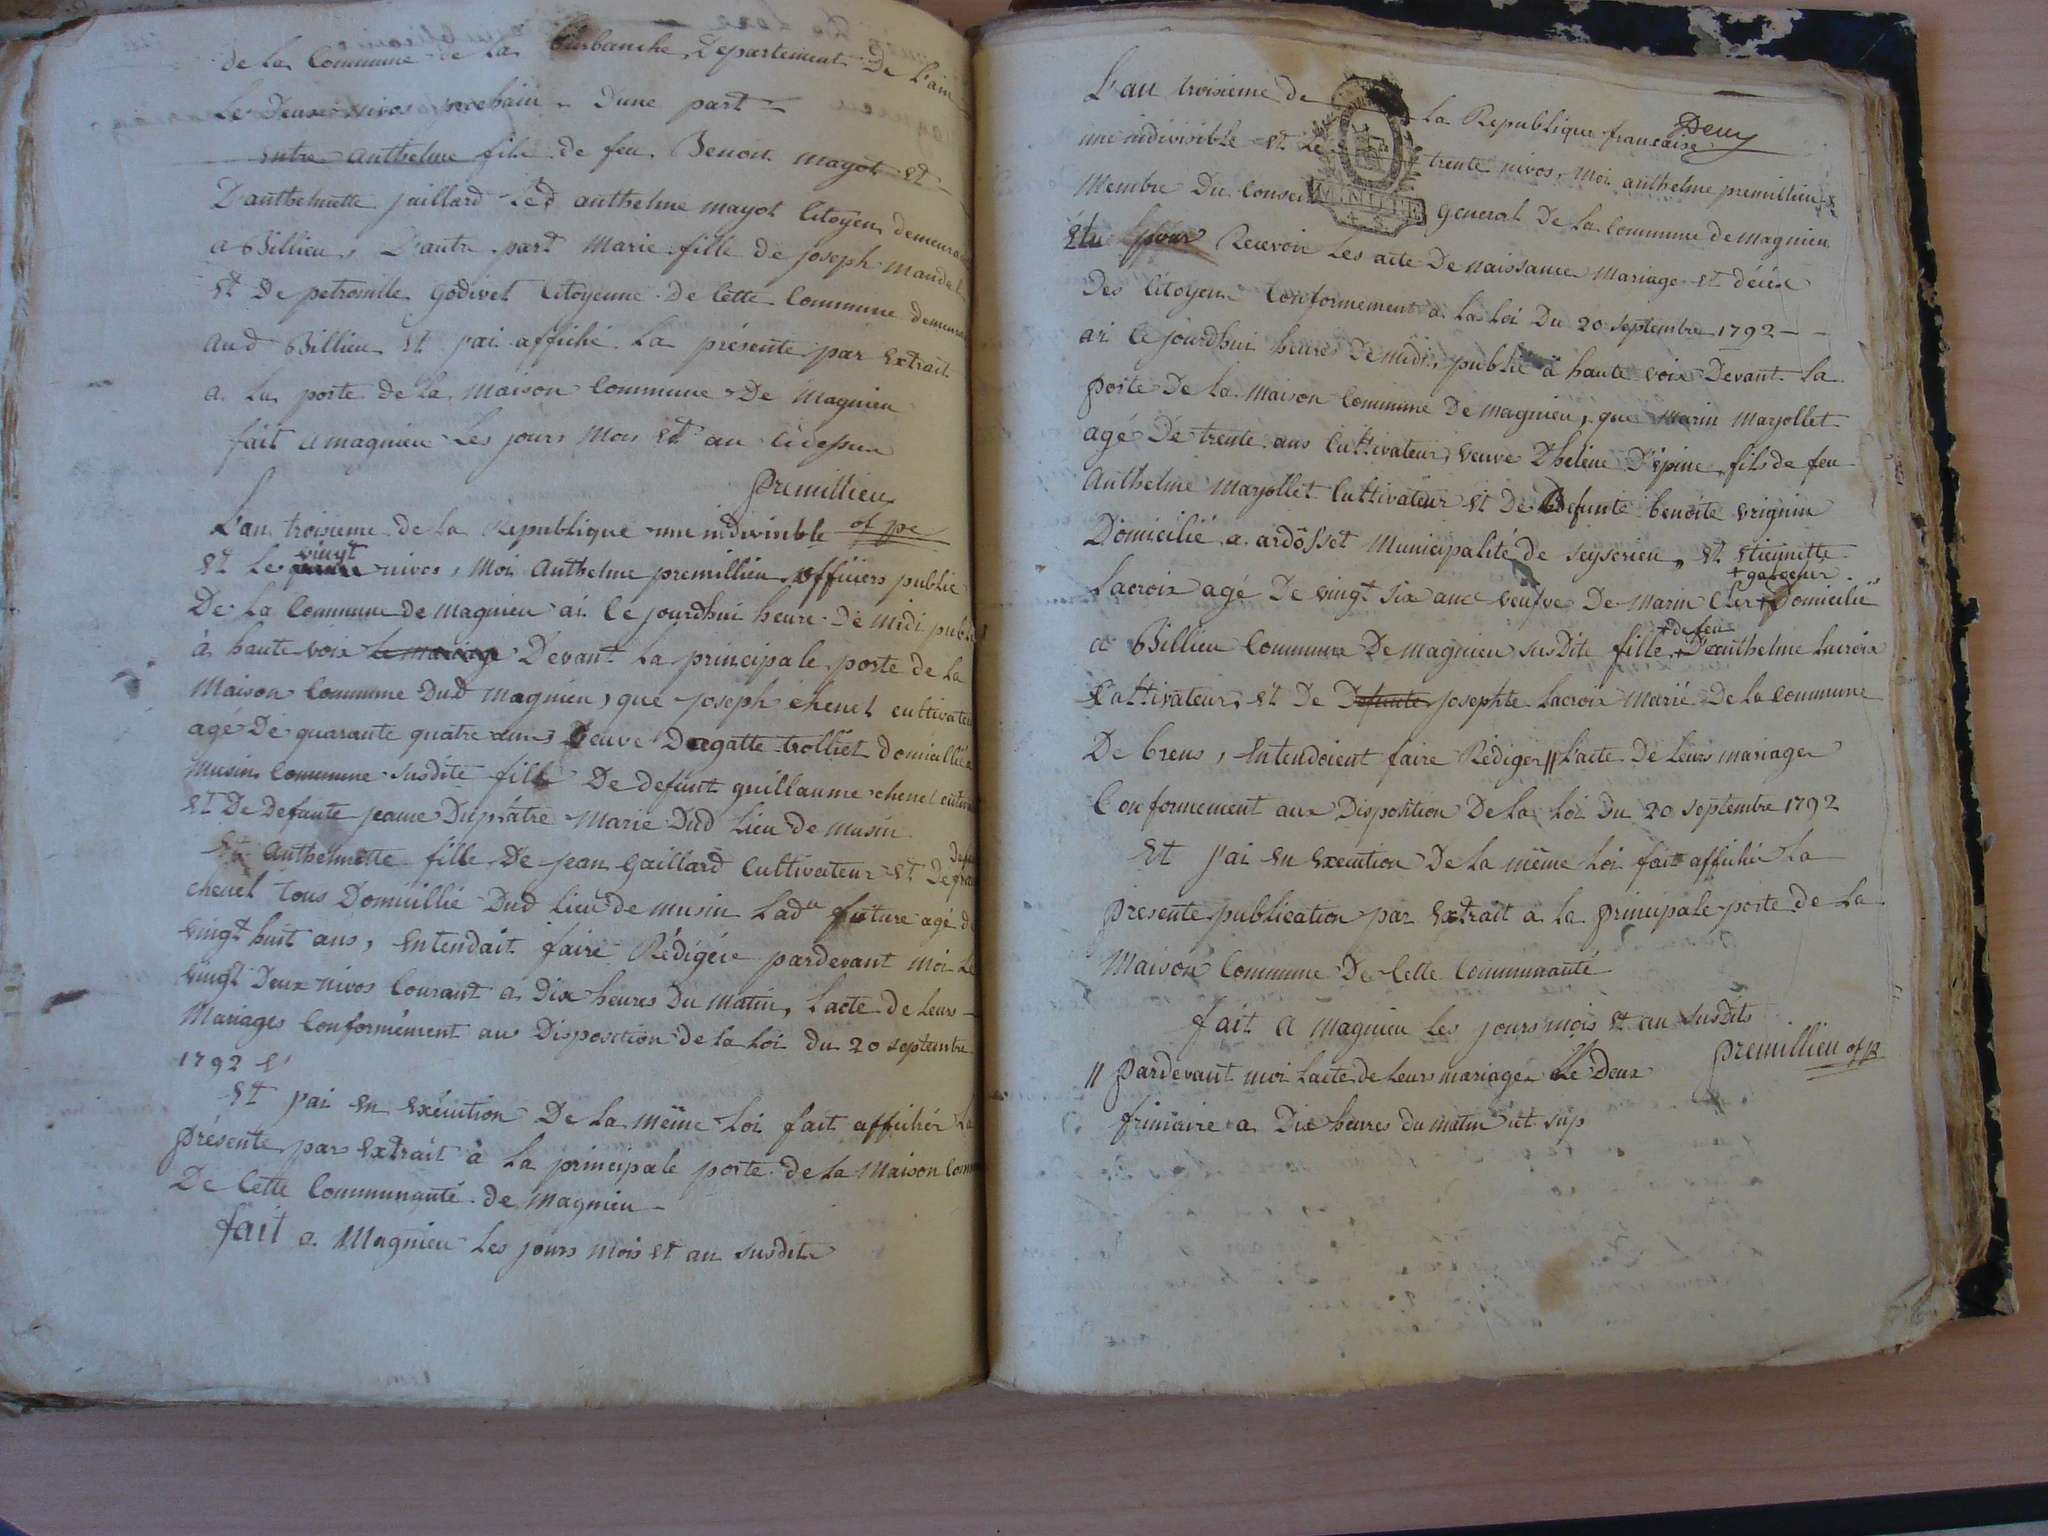 de la Commune de la Burbanche, Departement De Lain
Le Deuse nivos prochain Dune part
entre anthelme fils de feu Benoit mayot et
Danthelmette jaillard Led anthelme mayot Citoyen demeurant
a Billieu, D'autre part Marie fille de joseph mandel
et De petronille godivet Citoyenne De Cette Commune demeurant
aud Billieu et j'ai affiché la présente par extrait
a la porte de la maison Commune De Magnieu
fait a magnieu Les jours mois et an cidessus
premillieu
of pe
L'an troisieme de la Republique une indivisible
vingt
et Le nivos, Moi Anthelme premillieu officiers public
De la Commune de magnieu ai Ce jourdhui heure De midi publié
à haute voix le mariage Devant la principale porte de la
Maison Commune Dud magnieu, que joseph chenel cultivateur
agé De quarante quatre ans veuve Dagatte trolliet domicillié a
musin Commune susdite fille De defunt guillaume chenel
et De Defunte jeanne Duprâtre Marie Dud Lieu de musin
et Anthelmette fille De jean gaillard Cultivateur et De
chenel tous Domicillié Dud Lieu de musin Lad.te future agé de
vingt huit ans, entendait faire Rédigére pardevant moi Le
vingt Deux nivos Courant a Dix heures Du matin, Lacte de leurs
Mariages Conformément aus Disposition de la Loi du 20 septembre
1792
et j'ai en exécution De la même Loi fait affichér La
présente par extrait à la principale porte de la Maison Comm
De Cette Communauté de Magnieu
fait a Magnieu Les jours mois et an susdits
L'an troisieme de la Republique francaise
une indivisible et Le trente nivos, Moi anthelme premillieu
Membre Du Conseil general De la Commune de magnieu
MINUTE
élu pour Recevoir Les acte De naissance Mariage et décès
Des Citoyens Conformement a la Loi Du 20 septembre 1792
ai Ce jourdhui heures De midi, publié à haute voix Devant la
porte De la Maison Commune De magnieu, que Marin Marjollet
agé De trente ans Cultivateur, veuve Dhelène D'épine, fils de feu
Anthelme Marjollet Cultivateur et De Defunte benoite vrignin
Domicilié a ardôsset Municipalité de seyserieu, et etiennette
Lacroix agé De vingt six anc veufve De Marin Cler Domicilié
a Billieu Commune De magnieu susdite fille D'eanthelme Lacroix
+ de feu
Cultivateur, et De Defunte josephte Lacroix Marié De la Commune
De brens, entendoient faire Rédiger // Lacte De Leurs mariages
Conformement aux Disposition De la Loi Du 20 septembre 1792
et j'ai en execution De la même Loi fait affichér La
presente publication par extrait a la principale porte de la
Maison Commune De Cette Communauté
fait a magnieu Les jours mois et an susdits
premillieu of p
// pardevant moi Lacte de Leurs mariages Le Deux
frimaire a Dix heures du matin ut sup